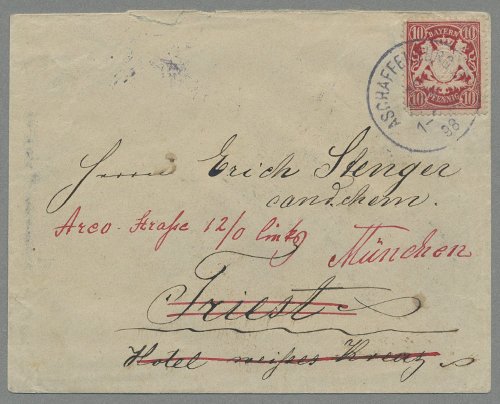 10 BAYERN 10
10 PFENNIG 10
ASCHAFFEN
88
Herrn Erich Stenger
cand.chem.
Arco-Straße 12/0 links
München
Triest
Hotel weißes Kreuz